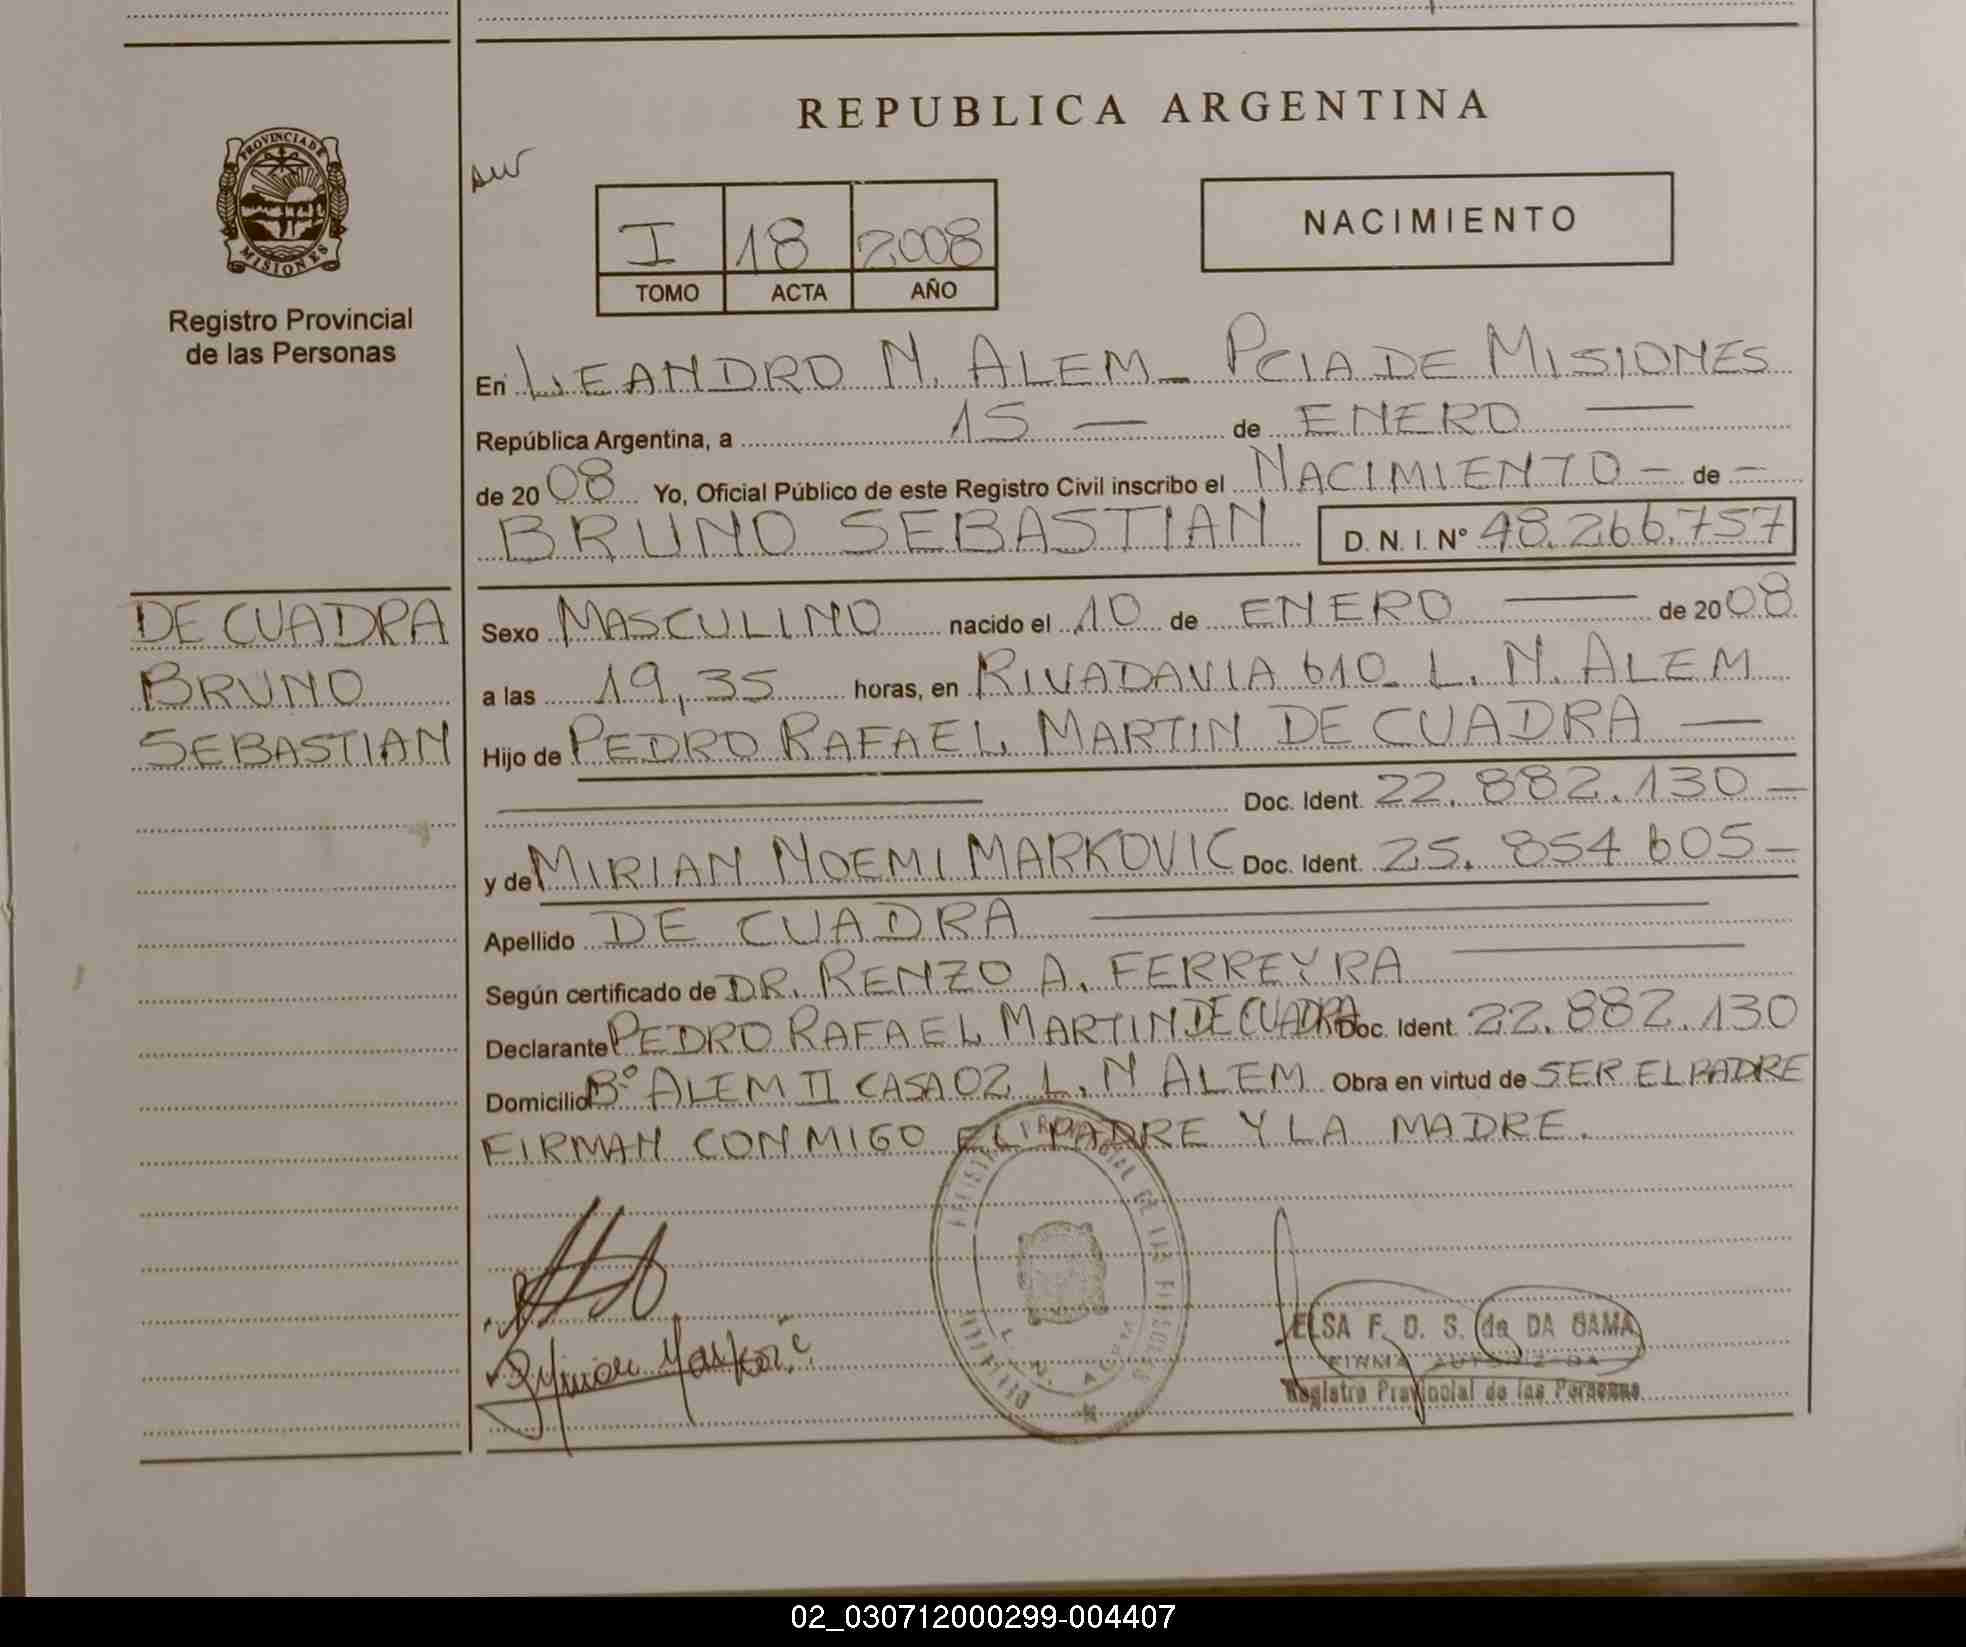 REPUBLICA ARGENTINA
PROVINCIA DE
MISIONES
Registro Provincial
de las Personas
I 18 2008
TOMO ACTA AÑO
NACIMIENTO
En LEANDRO N. ALEM - PCIA DE MISIONES
República Argentina, a 15 — de ENERO —
de 2008 Yo, Oficial Público de este Registro Civil inscribo el NACIMIENTO - de -
BRUNO SEBASTIAN D. N. I. N° 48.266.757
DE CUADRA
BRUNO
SEBASTIAN
Sexo MASCULINO nacido el 10 de ENERO — de 2008
a las 19,35 horas, en RIVADAVIA 610. L. N. ALEM
Hijo de PEDRO RAFAEL MARTIN DE CUADRA —
Doc. Ident. 22.882.130 -
y de MIRIAN NOEMI MARKOVIC Doc. Ident. 25.854 605 -
Apellido DE CUADRA
Según certificado de DR. RENZO A. FERREYRA
Declarante PEDRO RAFAEL MARTIN DE CUADRA Doc. Ident. 22.882.130
Domicilio B° ALEM II CASA 02 L. N ALEM Obra en virtud de SER EL PADRE
FIRMAN CONMIGO EL PADRE Y LA MADRE.
ELSA F. D. S. de DA GAMA
FIRMA AUTORIZADA
Registro Provincial de las Personas
02_030712000299-004407